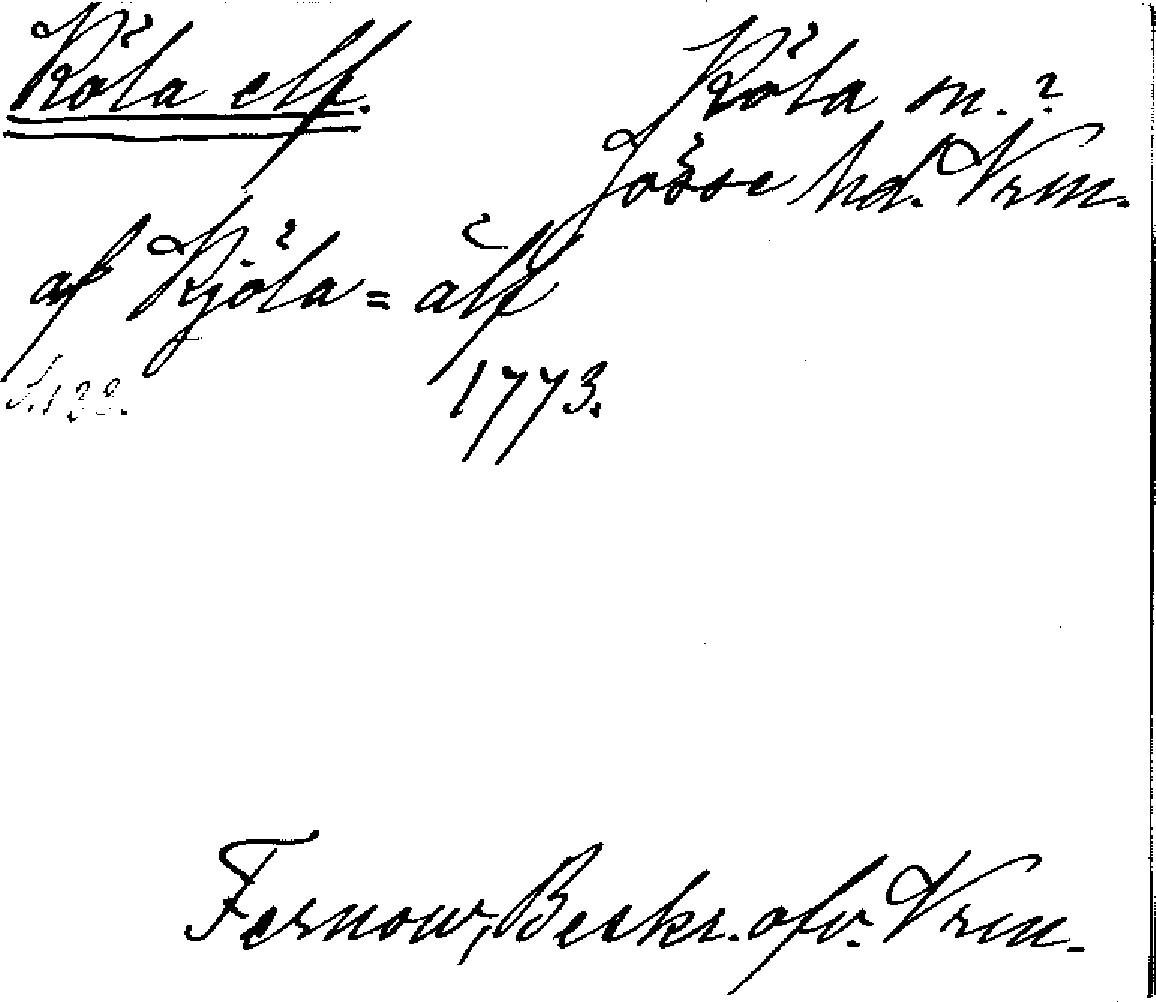 Köla elf.
Köla sn.?
Jösse hd. Vrm.
af Kjöla=älf
S. 133. 1773.
Fernow, Beskr. öfv. Vrm.